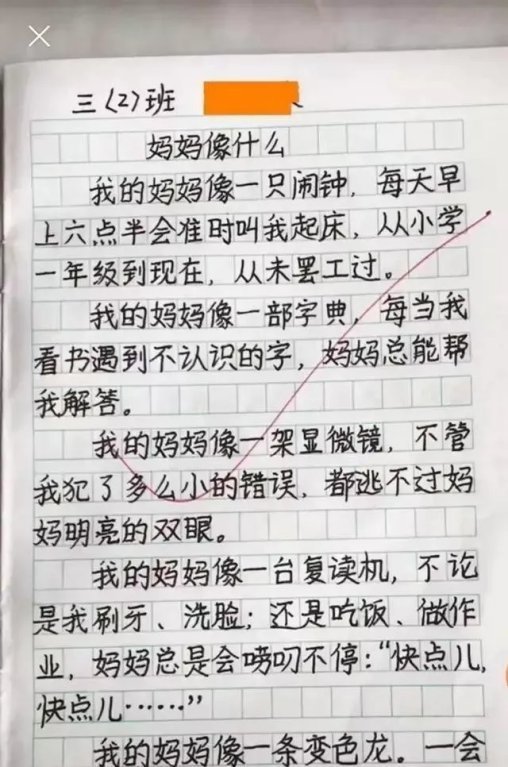 三(2)班
妈妈像什么
我的妈妈像一只闹钟，每天早
上六点半会准时叫我起床，从小学
一年级到现在，从未罢工过。
我的妈妈像一部字典，每当我
看书遇到不认识的字，妈妈总能帮
我解答。
我的妈妈像一架显微镜，不管
我犯了多么小的错误，都逃不过妈
妈明亮的双眼。
我的妈妈像一台复读机，不论
是我刷牙、洗脸；还是吃饭、做作
业，妈妈总是会唠叨不停：“快点儿，
快点儿……”
我的妈妈像一条变色龙。一会